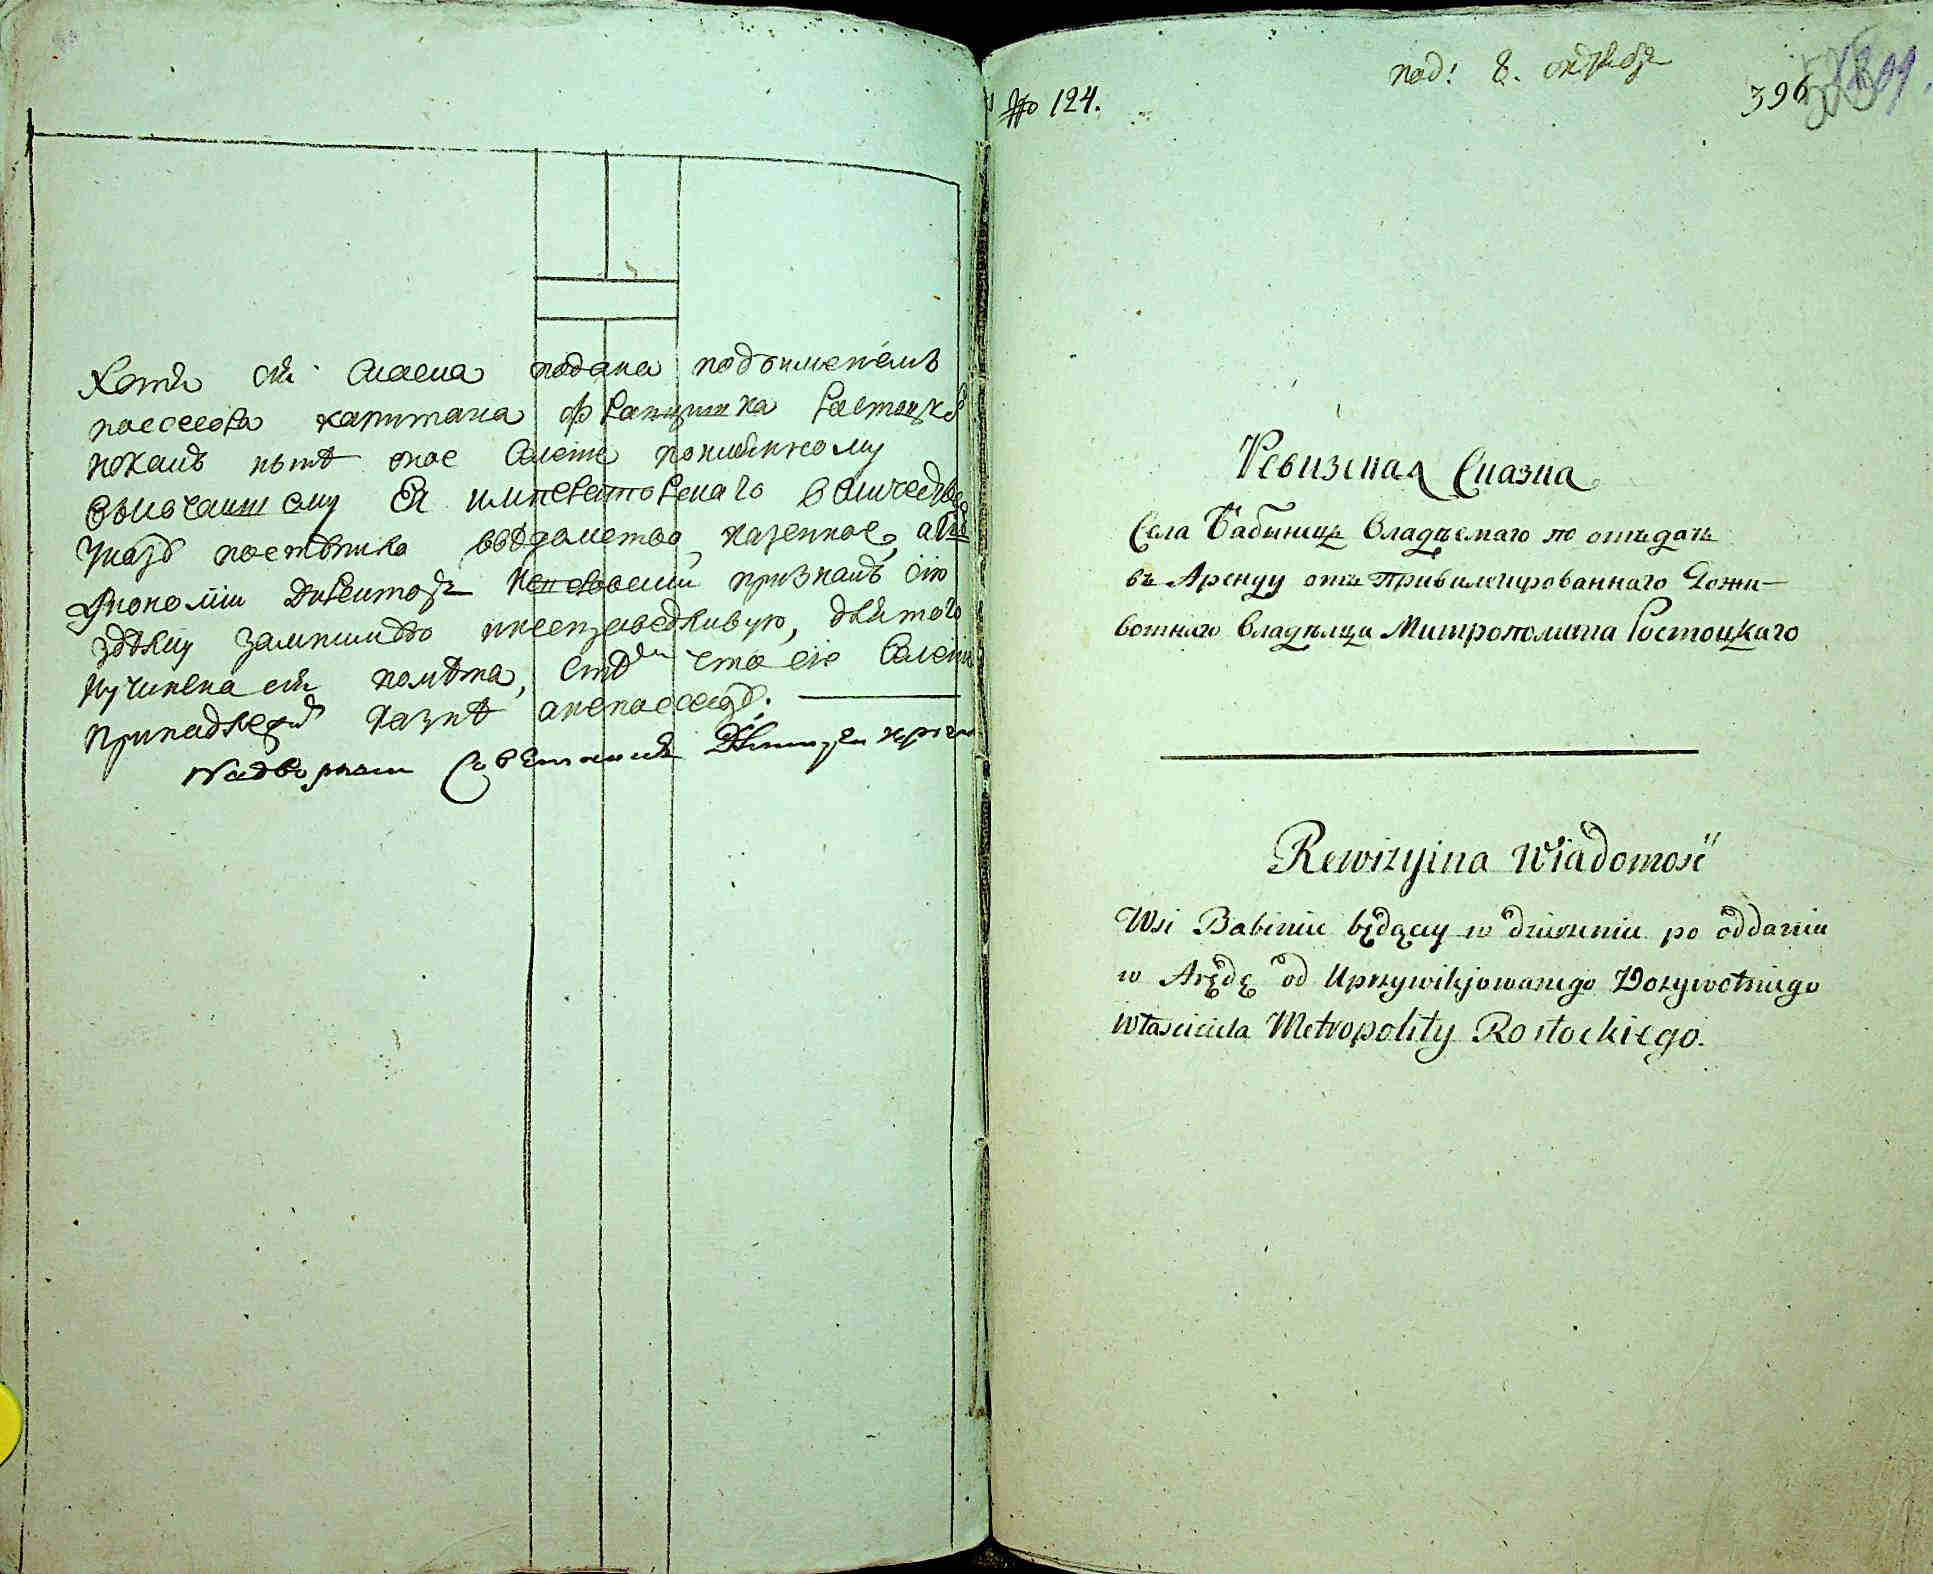 Хотя сія сказка подана подъименемъ
пассесора капитана Францишка Растоцкого
покаль нынѣ оное селеніе поимянному
высочайшему Ея императорскаго величества
указу поступило вѣдомство казенное, а
экономіи директоръ признавъ сію
здѣлку несправедливую, для того
иучинена сія помѣта, что сіе селеніе
принадлежитъ казнѣ анепассесору.
Надворный Совѣтникъ
№ 124.
под: 8. октября
396
Ревизская Сказка
Села Бабиницъ владѣемаго по отъдачѣ
въ Аренду отъ Привилегированнаго Дожи-
вотнаго владѣльца Митрополита Ростоцкаго
Rewizyina Wiadomość
Wsi Babinic będącey w dzierżeniu po oddaniu
w Arędę od Uprzywilejowanego Dożywotniego
Właściciela Metropolity Rostockiego.